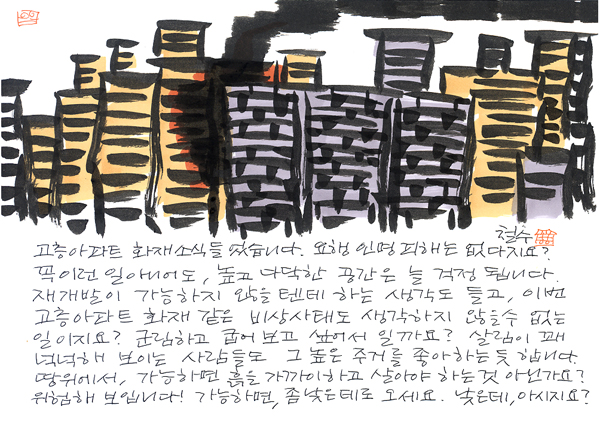 철수
고층아파트 화재소식들었습니다. 요행 인명피해는 없다지요?
꼭이런 일아니어도, 높고 다닥한 공간은 늘 걱정 됩니다.
재개발이 가능하지 않을텐데 하는 생각도 들고, 이번
고층아파트 화재 같은 비상사태도 생각하지 않을수 없는
일이지요? 군림하고 굽어보고 싶어서 일까요? 살림이 꽤
넉넉해 보이는 사람들도 그 높은 주거를 좋아하는 듯 합니다.
땅위에서, 가능하면 흙을 가까이하고 살아야 하는것 아닌가요?
위험해 보입니다! 가능하면, 좀낮은데로 오세요. 낮은데, 아시지요?